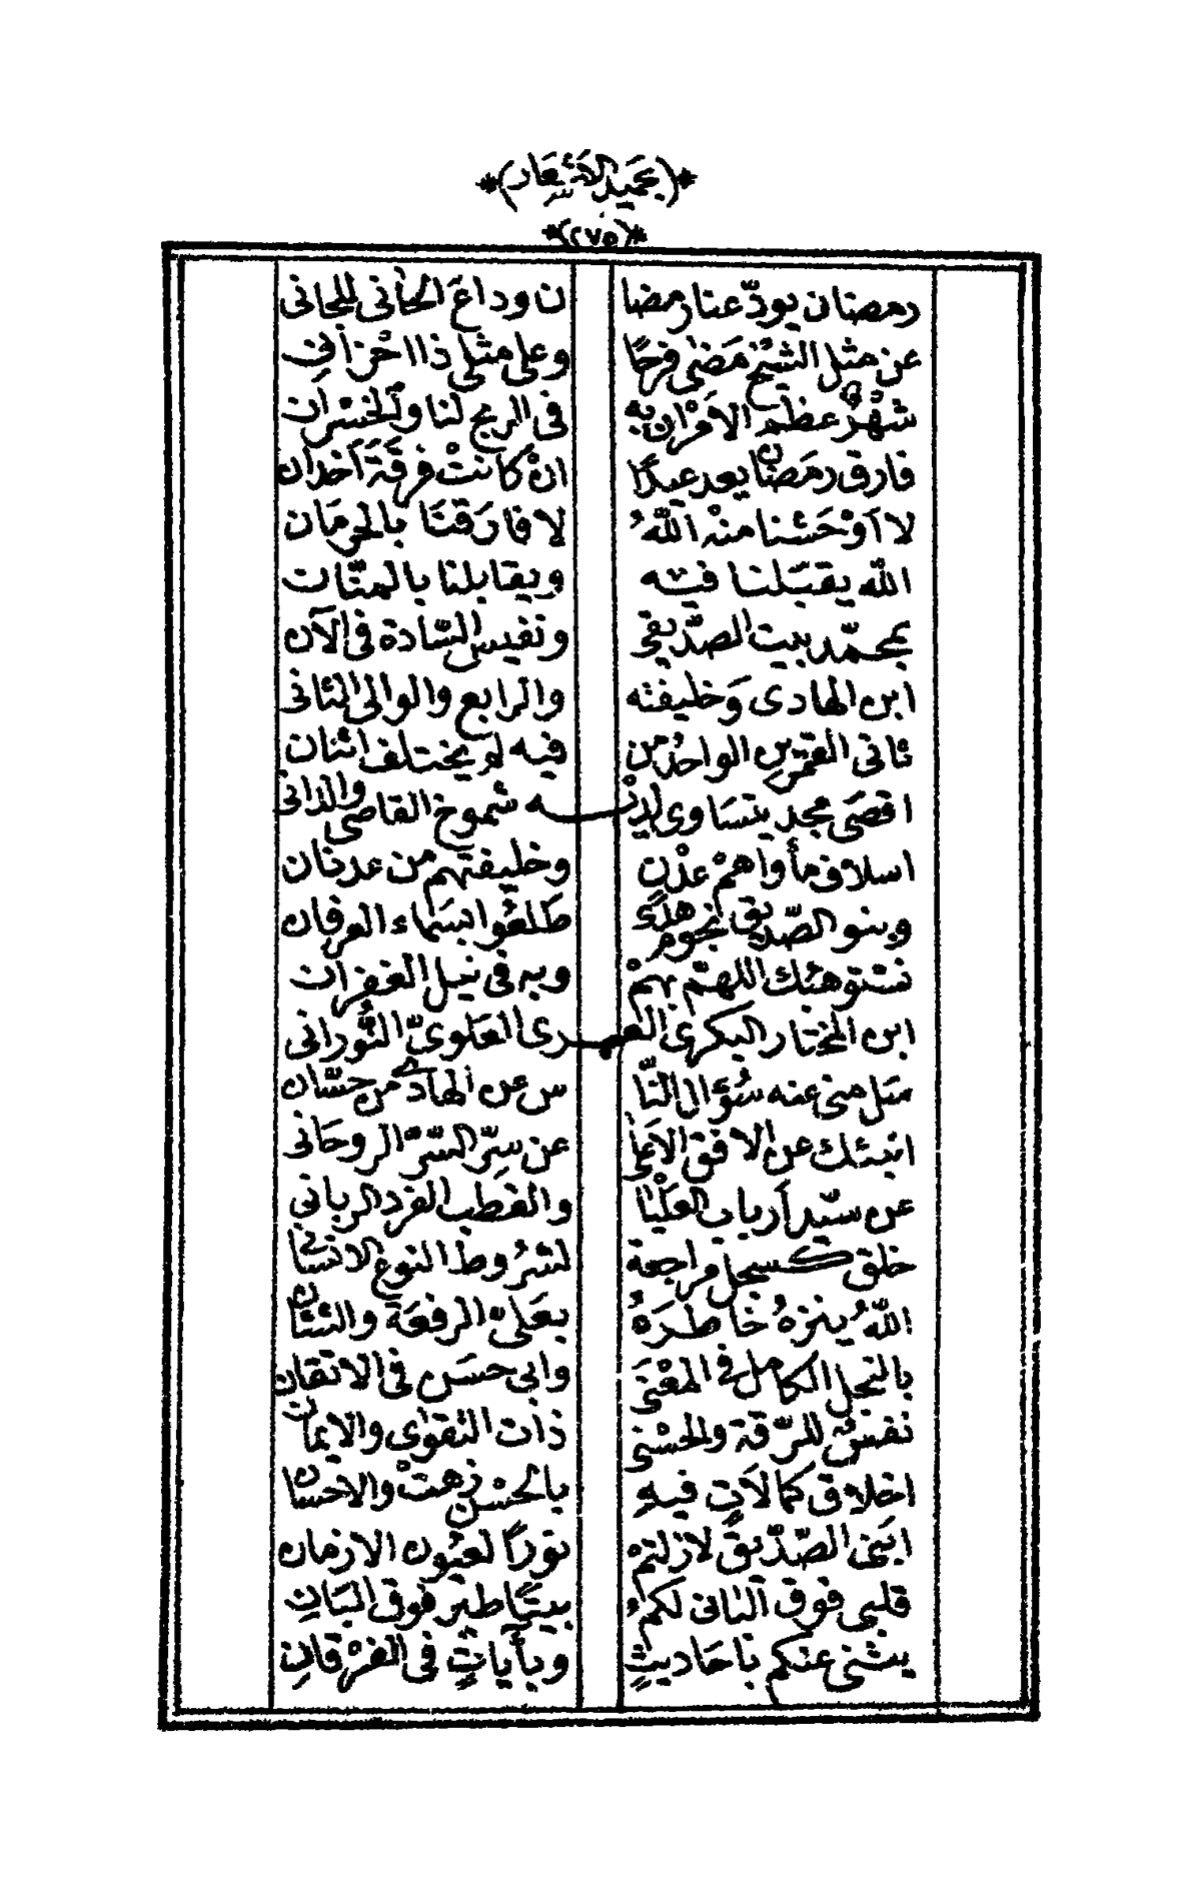 *(بحميد الاشعار)*
*(٢٧٥)*
رمضان يودّعنا رمضا ن وداعَ الجانى للجانى
عن مثل الشيخ مَضٰى فرحًا وعلى مثلى ذا احْزانى
شهْرٌ عظم الافْرانُ بهِ فى الربح لنا والخسْران
فارق رمَضانُ بعد عيدًا انْ كانتْ فرقَةَ اَخدان
لا اَوْحَشنا منْه اللّهُ لا فارَقنَا بالحرمَان
اللّه يقبَلنا فيه ويقابلنا بالمنّات
بمحمّد بيت الصدّيقى ونفيس السّادة فى الآن
ابن الهادى وَخليفته والرابع والوالى الثانى
ثانى القمرين الواحدُ من فيه لم يختلف اثنان
اقصَى مجد يتسَاوى لديْـ ـه شموخ القاصى والدانى
اسلاف مأواهمْ عدْنٍ وخليفتهم من عدنان
وبنو الصّديق نجوم هدًى طلعُوا بسَماء العرفان
نسْتوهبُك اللهمّ بهمْ وبه فى نيل الغفران
ابن المختار البكرى العمـ ـرى العَلوىّ النُّورانى
سَل منى عنه سُؤال النّا س عن الهادى من حسّان
انبئك عن الافق الاَعلى عن سِرِّ السّرّ الروحَانى
عن سيّد اَرباب العَلْيا والقطب الفرد الربانى
خلق كسجل مراجعة لشرُوط النوع الانسانى
اللّهُ ينزهُ خاطرَهُ بعَلىّ الرفعَة والشان
بالنجل الكامل فى المعْنَى وابى حسَن فى الاتقان
نفسٌ للرّقة والحسْنى ذات التقوٰى والايمان
اخلاق كمالَاتٍ فيهِ بالحسْن زهتْ والاحسان
ابَنى الصّدّيق لازلتمْ نورًا لعيُون الازمان
قلبى فوق البانى لكم بيتًا طير فوق البَانِ
يثنى عنكم باحَاديثٍ وبآياتٍ فى الفرْقانِ